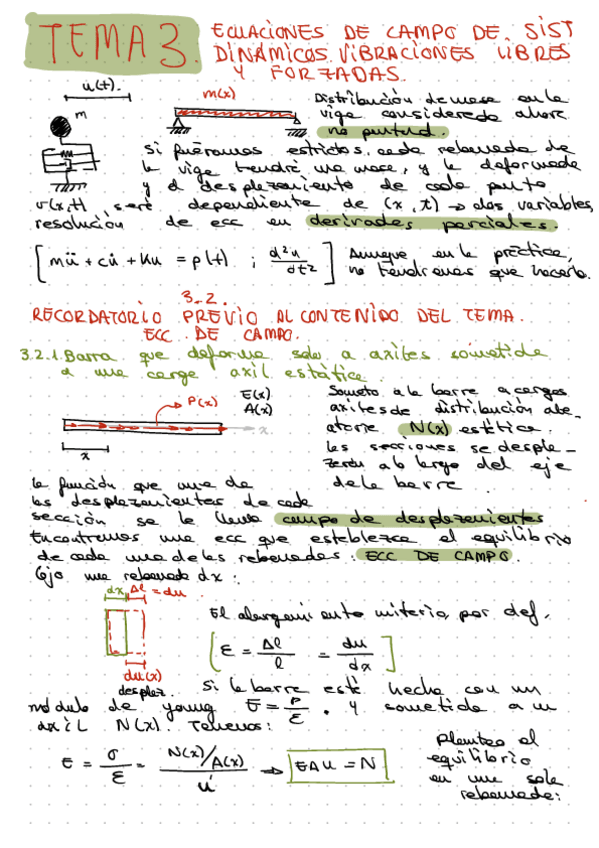 TEMA 3. ECUACIONES DE CAMPO DE SIST
DINÁMICOS. VIBRACIONES LIBRES
Y FORZADAS.
u(t).
m
m(x)
Distribución de masa en la
viga considerada ahora
no puntual.
si fuéramos estrictos, cada rebanada de
la viga tendrá una masa, y la deformada
y el desplazamiento de cada punto
v(x,t) será dependiente de (x,t) → dos variables,
resolución de ecc en derivadas parciales.
[mü + cu̇ + Ku = p(t) ; d²u/dt²] Aunque en la práctica,
no tendremos que hacerlo.
3.2.
RECORDATORIO PREVIO AL CONTENIDO DEL TEMA.
ECC DE CAMPO.
3.2.1. Barra que deforma solo a axiles sometida
a una carga axil estática.
P(x)
E(x)
A(x)
x
x
Someto a la barra a cargas
axiles de distribución ale-
atoria N(x) estática.
las secciones se despla-
zarán a lo largo del eje
de la barra.
la función que une de
los desplazamientos de cada
sección se le llama campo de desplazamientos
Encontremos una ecc que establezca el equilibrio
de cada una de las rebanadas. ECC DE CAMPO.
Cojo una rebanada dx:
dx Δl = du
du(x)
desplaz.
El alargamiento unitario, por def.
[ε = Δl/l = du/dx]
Si la barra está hecha con un
módulo de young E = P/ε . Y sometida a un
axil N(x). Tenemos:
E = σ/ε = N(x)/A(x) / u' → EAu = N
Planteo el
equilibrio
en una sola
rebanada: